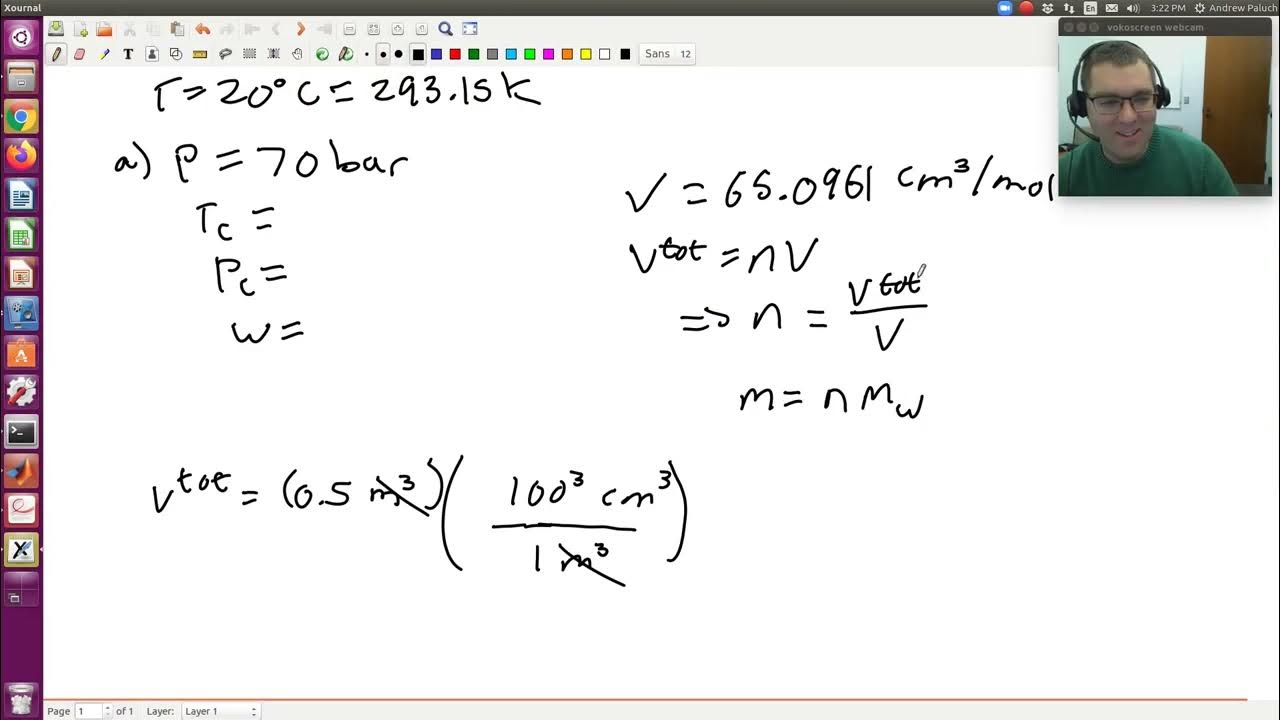 Xournal
En
3:22 PM
Andrew Paluch
vokoscreen webcam
Sans 12
T = 20°C = 293.15K
a) P = 70 bar
Tc =
Pc =
ω =
V = 65.0961 cm³/mol
Vtot = nV
=> n = Vtot / V
m = n Mw
Vtot = (0.5 m³)(100³ cm³ / 1 m³)
Page 1 of 1 Layer: Layer 1